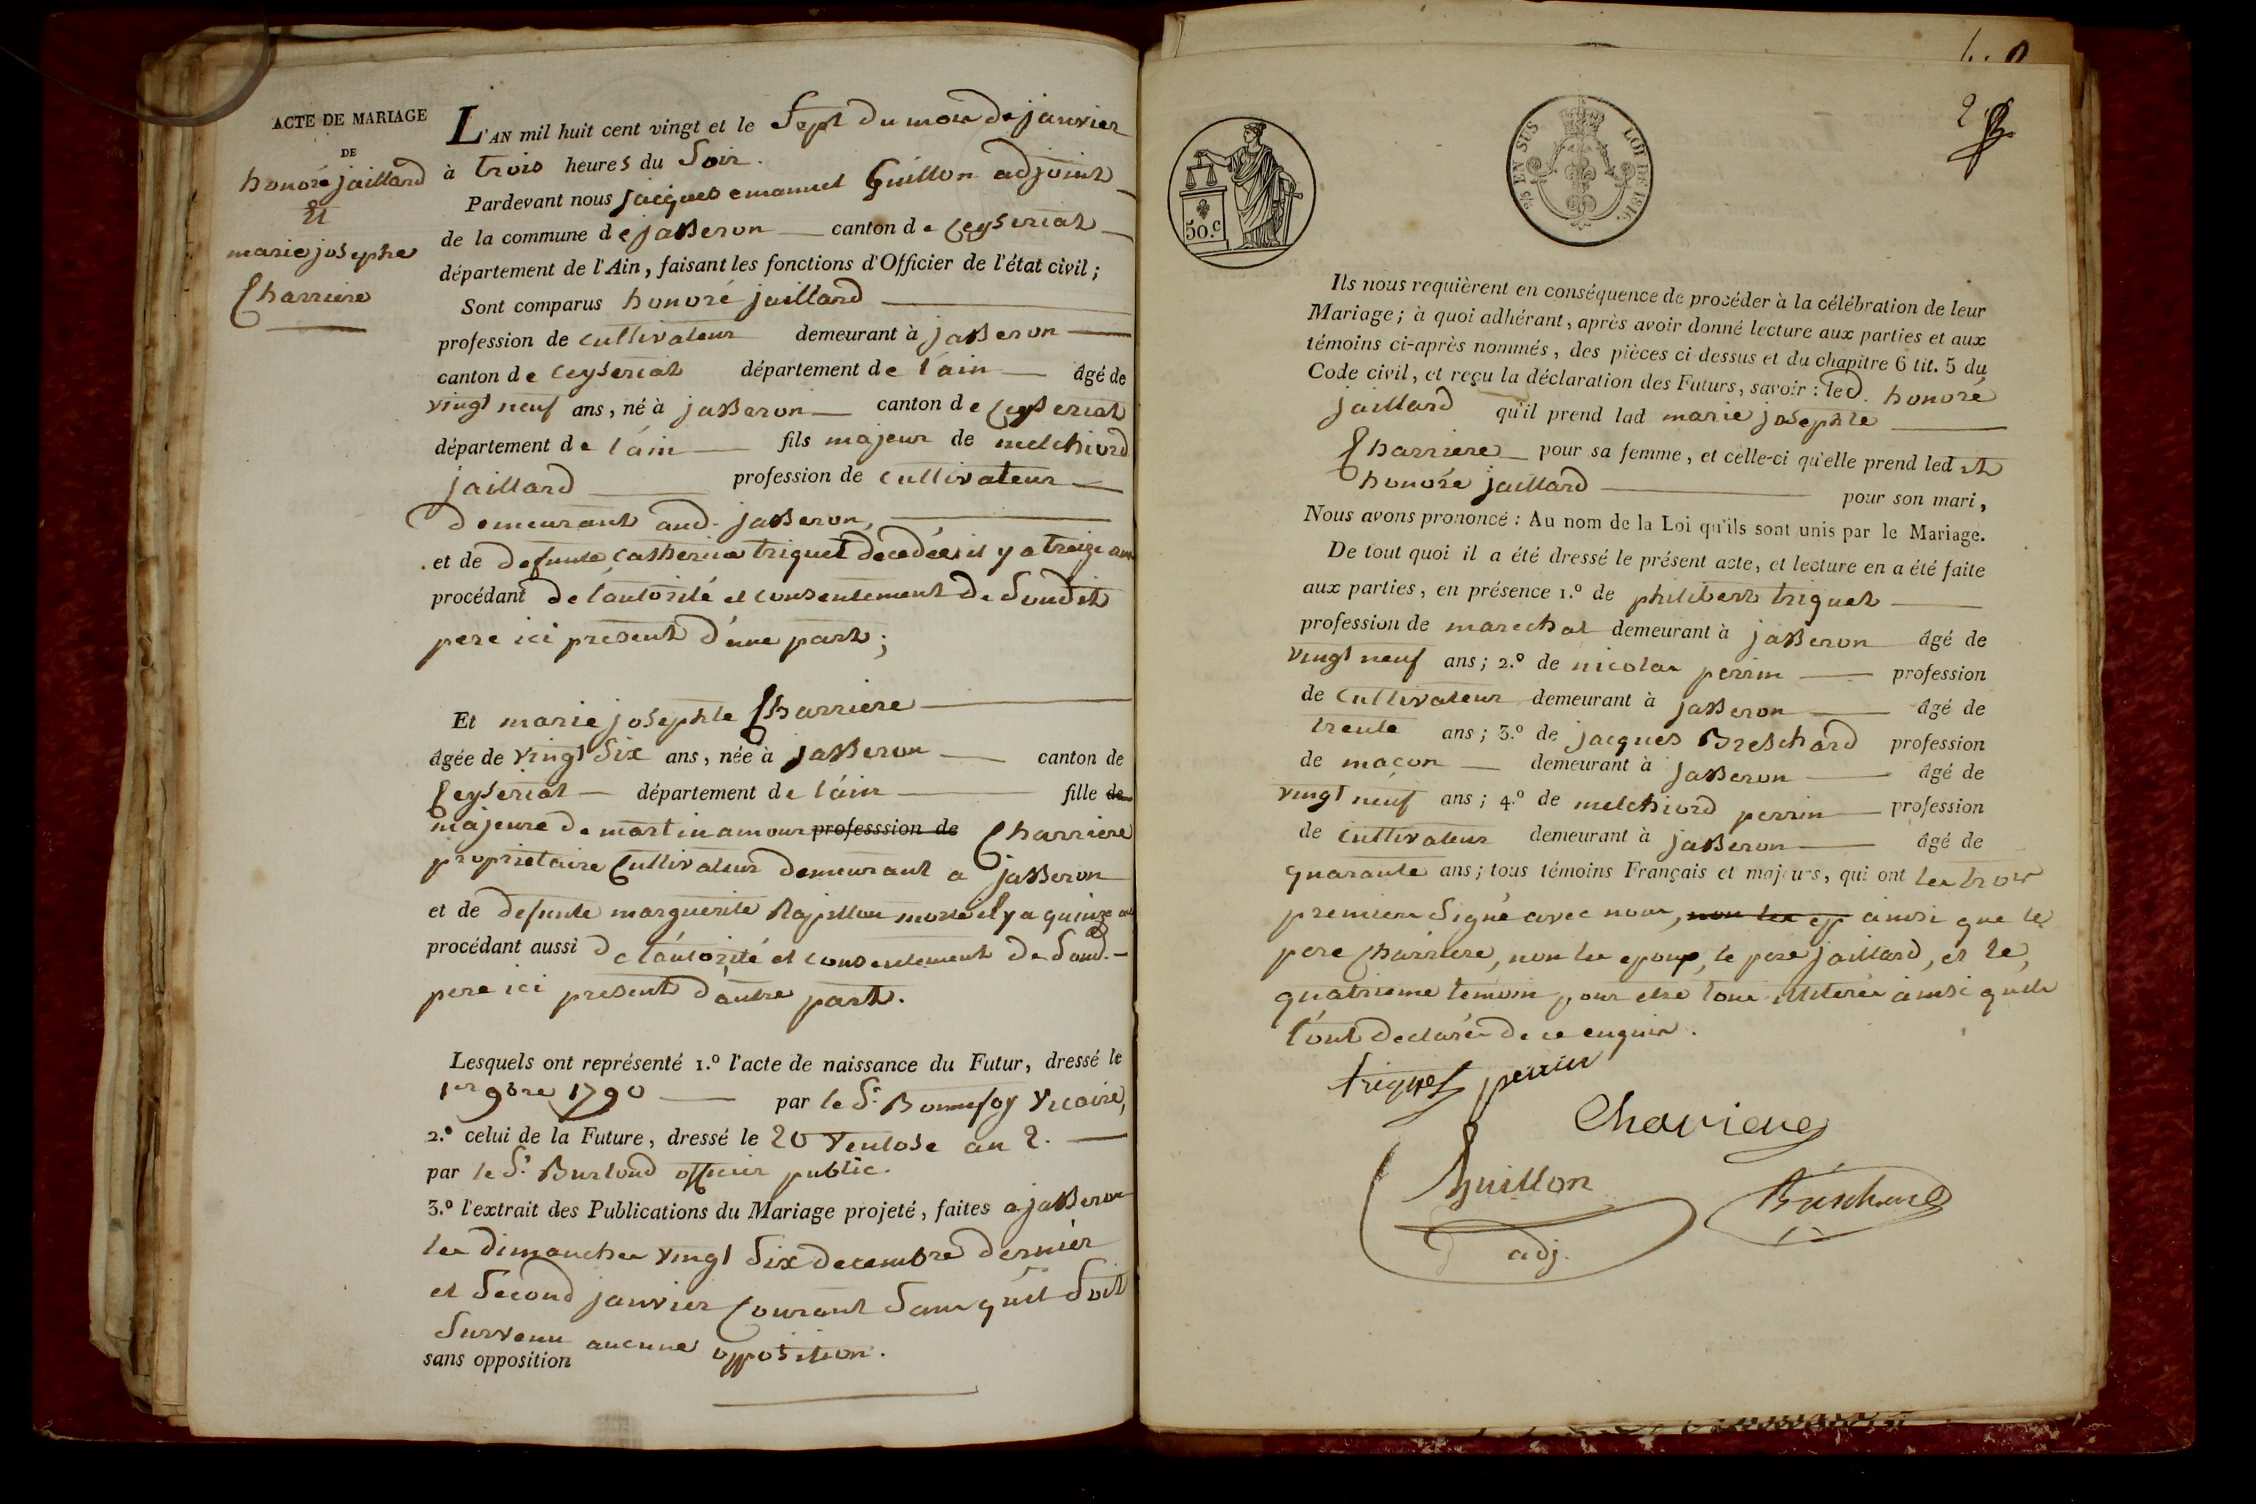 ACTE DE MARIAGE
DE
honoré jaillard
Et
marie josephte
Charriere
L'AN mil huit cent vingt et le Sept du mois de janvier
à trois heures du Soir.
Pardevant nous jacques emanuel Guillon adjoint
de la commune de jasseron canton de Ceyseriat
département de l'Ain, faisant les fonctions d'Officier de l'état civil;
Sont comparus honoré jaillard
profession de cultivateur demeurant à jasseron
canton de Ceyseriat département de l'ain âgé de
vingt neuf ans, né à jasseron canton de Ceyseriat
département de l'ain fils majeur de melchiord
jaillard profession de cultivateur
demeurant aud. jasseron,
et de defunte Catherine triquet decedée il y a treize ans
procédant de l'autorité et consentement de Sondit
pere ici present d'une part;
Et marie josephte Charriere
âgée de vingt Six ans, née à jasseron canton de
Ceyseriat département de l'ain fille de
majeure de martin amour professsion de Charriere
proprietaire Cultivateur demeurant a jasseron
et de defunte marguerite Rapillon morte il y a quinze ans
procédant aussi de l'autorité et consentement de Sond.
pere ici present d'autre part.
Lesquels ont représenté 1.º l'acte de naissance du Futur, dressé le
1er 9bre 1790 par le Sr. Bonnefoy Vicaire,
2.º celui de la Future, dressé le 20 ventose an 2.
par le Sr. Burlond officier public.
3.º l'extrait des Publications du Mariage projeté, faites a jasseron
les dimanches vingt Six decembre dernier
et Second janvier Courant Sans qu'il Soit
Survenu aucune opposition.
sans opposition
50.c
25 EN SUS
LOI DE 1816.
2
Ils nous requièrent en conséquence de procéder à la célébration de leur
Mariage; à quoi adhérant, après avoir donné lecture aux parties et aux
témoins ci-après nommés, des pièces ci dessus et du chapitre 6 tit. 5 du
Code civil, et reçu la déclaration des Futurs, savoir: led. honoré
jaillard qu'il prend lad marie josephte
Charriere pour sa femme, et celle-ci qu'elle prend ledit
honoré jaillard pour son mari,
Nous avons prononcé: Au nom de la Loi qu'ils sont unis par le Mariage.
De tout quoi il a été dressé le présent acte, et lecture en a été faite
aux parties, en présence 1.º de philibert triquet
profession de marechal demeurant à jasseron âgé de
vingt neuf ans; 2.º de nicolas perrin profession
de Cultivateur demeurant à jasseron âgé de
trente ans; 3.º de jacques Breschard profession
de maçon demeurant à jasseron âgé de
vingt neuf ans; 4.º de melchiord perrin profession
de Cultivateur demeurant à jasseron âgé de
quarante ans; tous témoins Français et majeurs, qui ont les trois
premiers Signé avec nous, non les ep ainsi que le
pere Charriere, non les epoux, le pere jaillard, et le
quatrieme temoin pour etre tous illiterés ainsi qu'ils
l'ont declarés de ce enquis.
triquet perrin
Charriere
Guillon
adj.
Breschard